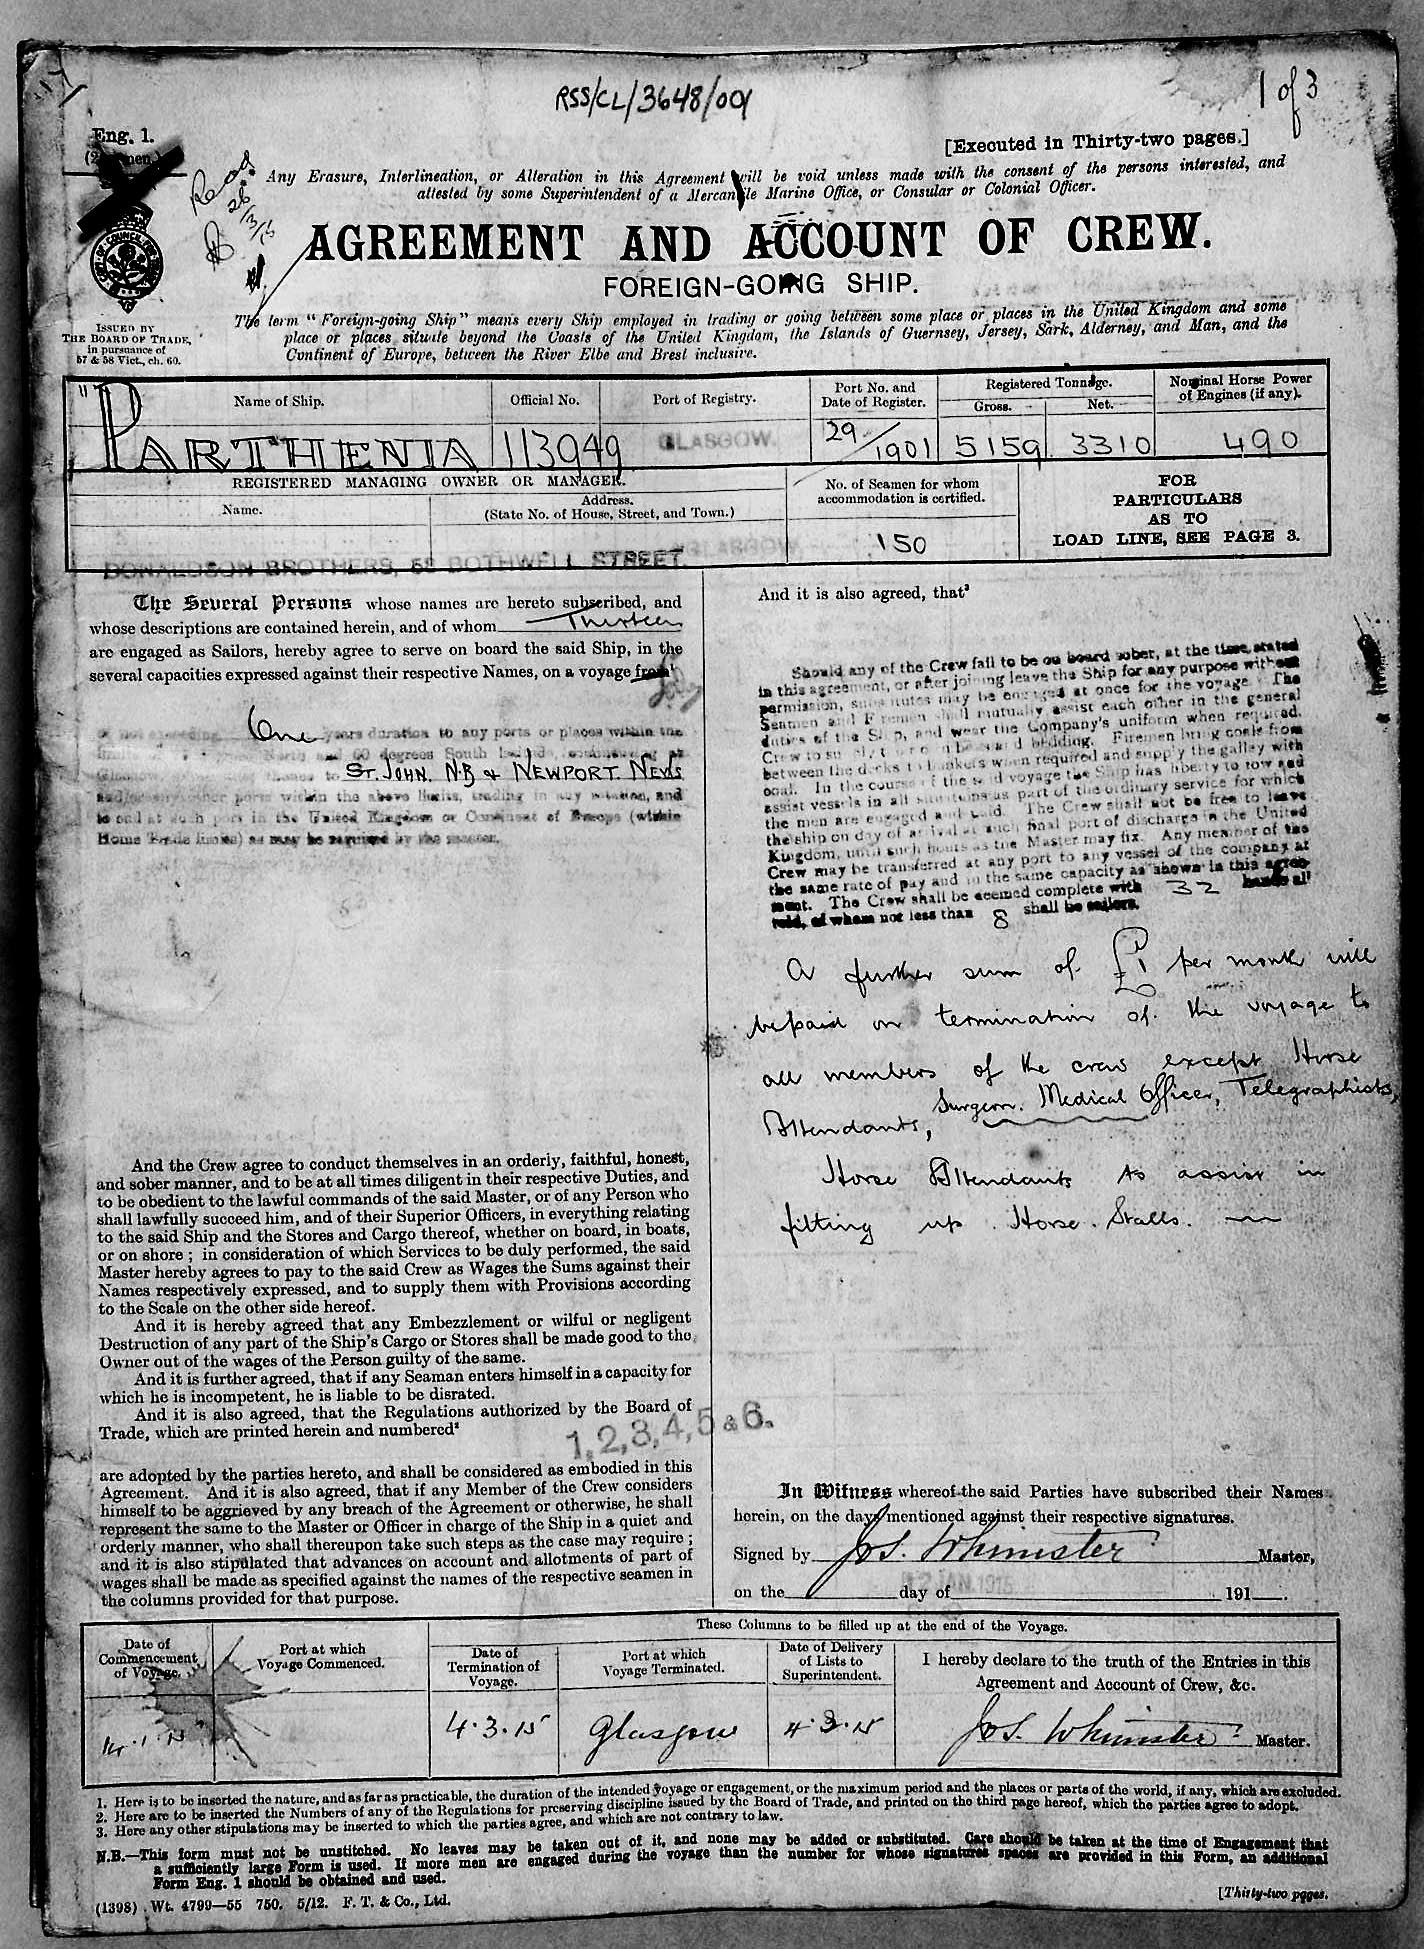 RSS/CL/3648/001
1 of 3
Eng. 1.
[Executed in Thirty-two pages.]
Any Erasure, Interlineation, or Alteration in this Agreement will be void unless made with the consent of the persons interested, and
attested by some Superintendent of a Mercantile Marine Office, or Consular or Colonial Officer.
AGREEMENT AND ACCOUNT OF CREW.
FOREIGN-GOING SHIP.
ISSUED BY
THE BOARD OF TRADE,
in pursuance of
57 & 58 Vict., ch. 60.
The term "Foreign-going Ship" means every Ship employed in trading or going between some place or places in the United Kingdom and some
place or places situate beyond the Coasts of the United Kingdom, the Islands of Guernsey, Jersey, Sark, Alderney, and Man, and the
Continent of Europe, between the River Elbe and Brest inclusive.
Name of Ship.
Official No.
Port of Registry.
Port No. and
Date of Register.
Registered Tonnage.
Gross.
Net.
Nominal Horse Power
of Engines (if any).
"PARTHENIA
113949
GLASGOW.
29/1901
5159
3310
490
REGISTERED MANAGING OWNER OR MANAGER.
Name.
Address.
(State No. of House, Street, and Town.)
No. of Seamen for whom
accommodation is certified.
150
FOR
PARTICULARS
AS TO
LOAD LINE, SEE PAGE 3.
DONALDSON BROTHERS, 58 BOTHWELL STREET. GLASGOW
The Several Persons whose names are hereto subscribed, and
whose descriptions are contained herein, and of whom Thirteen
are engaged as Sailors, hereby agree to serve on board the said Ship, in the
several capacities expressed against their respective Names, on a voyage from¹
of not exceeding One years duration to any ports or places within the
and 60 degrees South latitude, commencing at
St. JOHN. N.B & NEWPORT NEWS
and/or other ports within the above limits, trading in any rotation, and
to end at such port in the United Kingdom or Continent of Europe (within
Home Trade limits) as may be required by the master.
And the Crew agree to conduct themselves in an orderly, faithful, honest,
and sober manner, and to be at all times diligent in their respective Duties, and
to be obedient to the lawful commands of the said Master, or of any Person who
shall lawfully succeed him, and of their Superior Officers, in everything relating
to the said Ship and the Stores and Cargo thereof, whether on board, in boats,
or on shore; in consideration of which Services to be duly performed, the said
Master hereby agrees to pay to the said Crew as Wages the Sums against their
Names respectively expressed, and to supply them with Provisions according
to the Scale on the other side hereof.
And it is hereby agreed that any Embezzlement or wilful or negligent
Destruction of any part of the Ship's Cargo or Stores shall be made good to the
Owner out of the wages of the Person guilty of the same.
And it is further agreed, that if any Seaman enters himself in a capacity for
which he is incompetent, he is liable to be disrated.
And it is also agreed, that the Regulations authorized by the Board of
Trade, which are printed herein and numbered²
1, 2, 3, 4, 5 & 6.
are adopted by the parties hereto, and shall be considered as embodied in this
Agreement. And it is also agreed, that if any Member of the Crew considers
himself to be aggrieved by any breach of the Agreement or otherwise, he shall
represent the same to the Master or Officer in charge of the Ship in a quiet and
orderly manner, who shall thereupon take such steps as the case may require;
and it is also stipulated that advances on account and allotments of part of
wages shall be made as specified against the names of the respective seamen in
the columns provided for that purpose.
And it is also agreed, that³
Should any of the Crew fail to be on board sober, at the time stated
in this agreement, or after joining leave the Ship for any purpose without
permission, substitutes may be engaged at once for the voyage. The
Seamen and Firemen shall mutually assist each other in the general
duties of the Ship, and wear the Company's uniform when required.
Crew to supply their own beds and bedding. Firemen bring coals from
between the decks to bunkers when required and supply the galley with
coal. In the course of the said voyage the Ship has liberty to tow and
assist vessels in all situations as part of the ordinary service for which
the men are engaged and paid. The Crew shall not be free to leave
the ship on day of arrival at such final port of discharge in the United
Kingdom, until such hours as the Master may fix. Any member of the
Crew may be transferred at any port to any vessel of the company at
the same rate of pay and in the same capacity as shown in this agree-
ment. The Crew shall be deemed complete with 32 hands all
told, of whom not less than 8 shall be sailors.
A further sum of £1 per month will
be paid on termination of the voyage to
all members of the crew except Horse
Attendants, Surgeon. Medical Officer, Telegraphists,
Horse Attendants to assist in
fitting up Horse Stalls.
In Witness whereof the said Parties have subscribed their Names
herein, on the days mentioned against their respective signatures.
Signed by Jas. Whimster Master,
on the day of 191
2 JAN. 1915
These Columns to be filled up at the end of the Voyage.
Date of
Commencement
of Voyage.
Port at which
Voyage Commenced.
Date of
Termination of
Voyage.
Port at which
Voyage Terminated.
Date of Delivery
of Lists to
Superintendent.
I hereby declare to the truth of the Entries in this
Agreement and Account of Crew, &c.
14.1.15
4.3.15
Glasgow
4.3.15
Jas. Whimster Master.
1. Here is to be inserted the nature, and as far as practicable, the duration of the intended voyage or engagement, or the maximum period and the places or parts of the world, if any, which are excluded.
2. Here are to be inserted the Numbers of any of the Regulations for preserving discipline issued by the Board of Trade, and printed on the third page hereof, which the parties agree to adopt.
3. Here any other stipulations may be inserted to which the parties agree, and which are not contrary to law.
N.B.—This form must not be unstitched. No leaves may be taken out of it, and none may be added or substituted. Care should be taken at the time of Engagement that
a sufficiently large Form is used. If more men are engaged during the voyage than the number for whose signatures spaces are provided in this Form, an additional
Form Eng. 1 should be obtained and used.
(1398) Wt. 4799—55 750. 5/12. F. T. & Co., Ltd.
[Thirty-two pages.